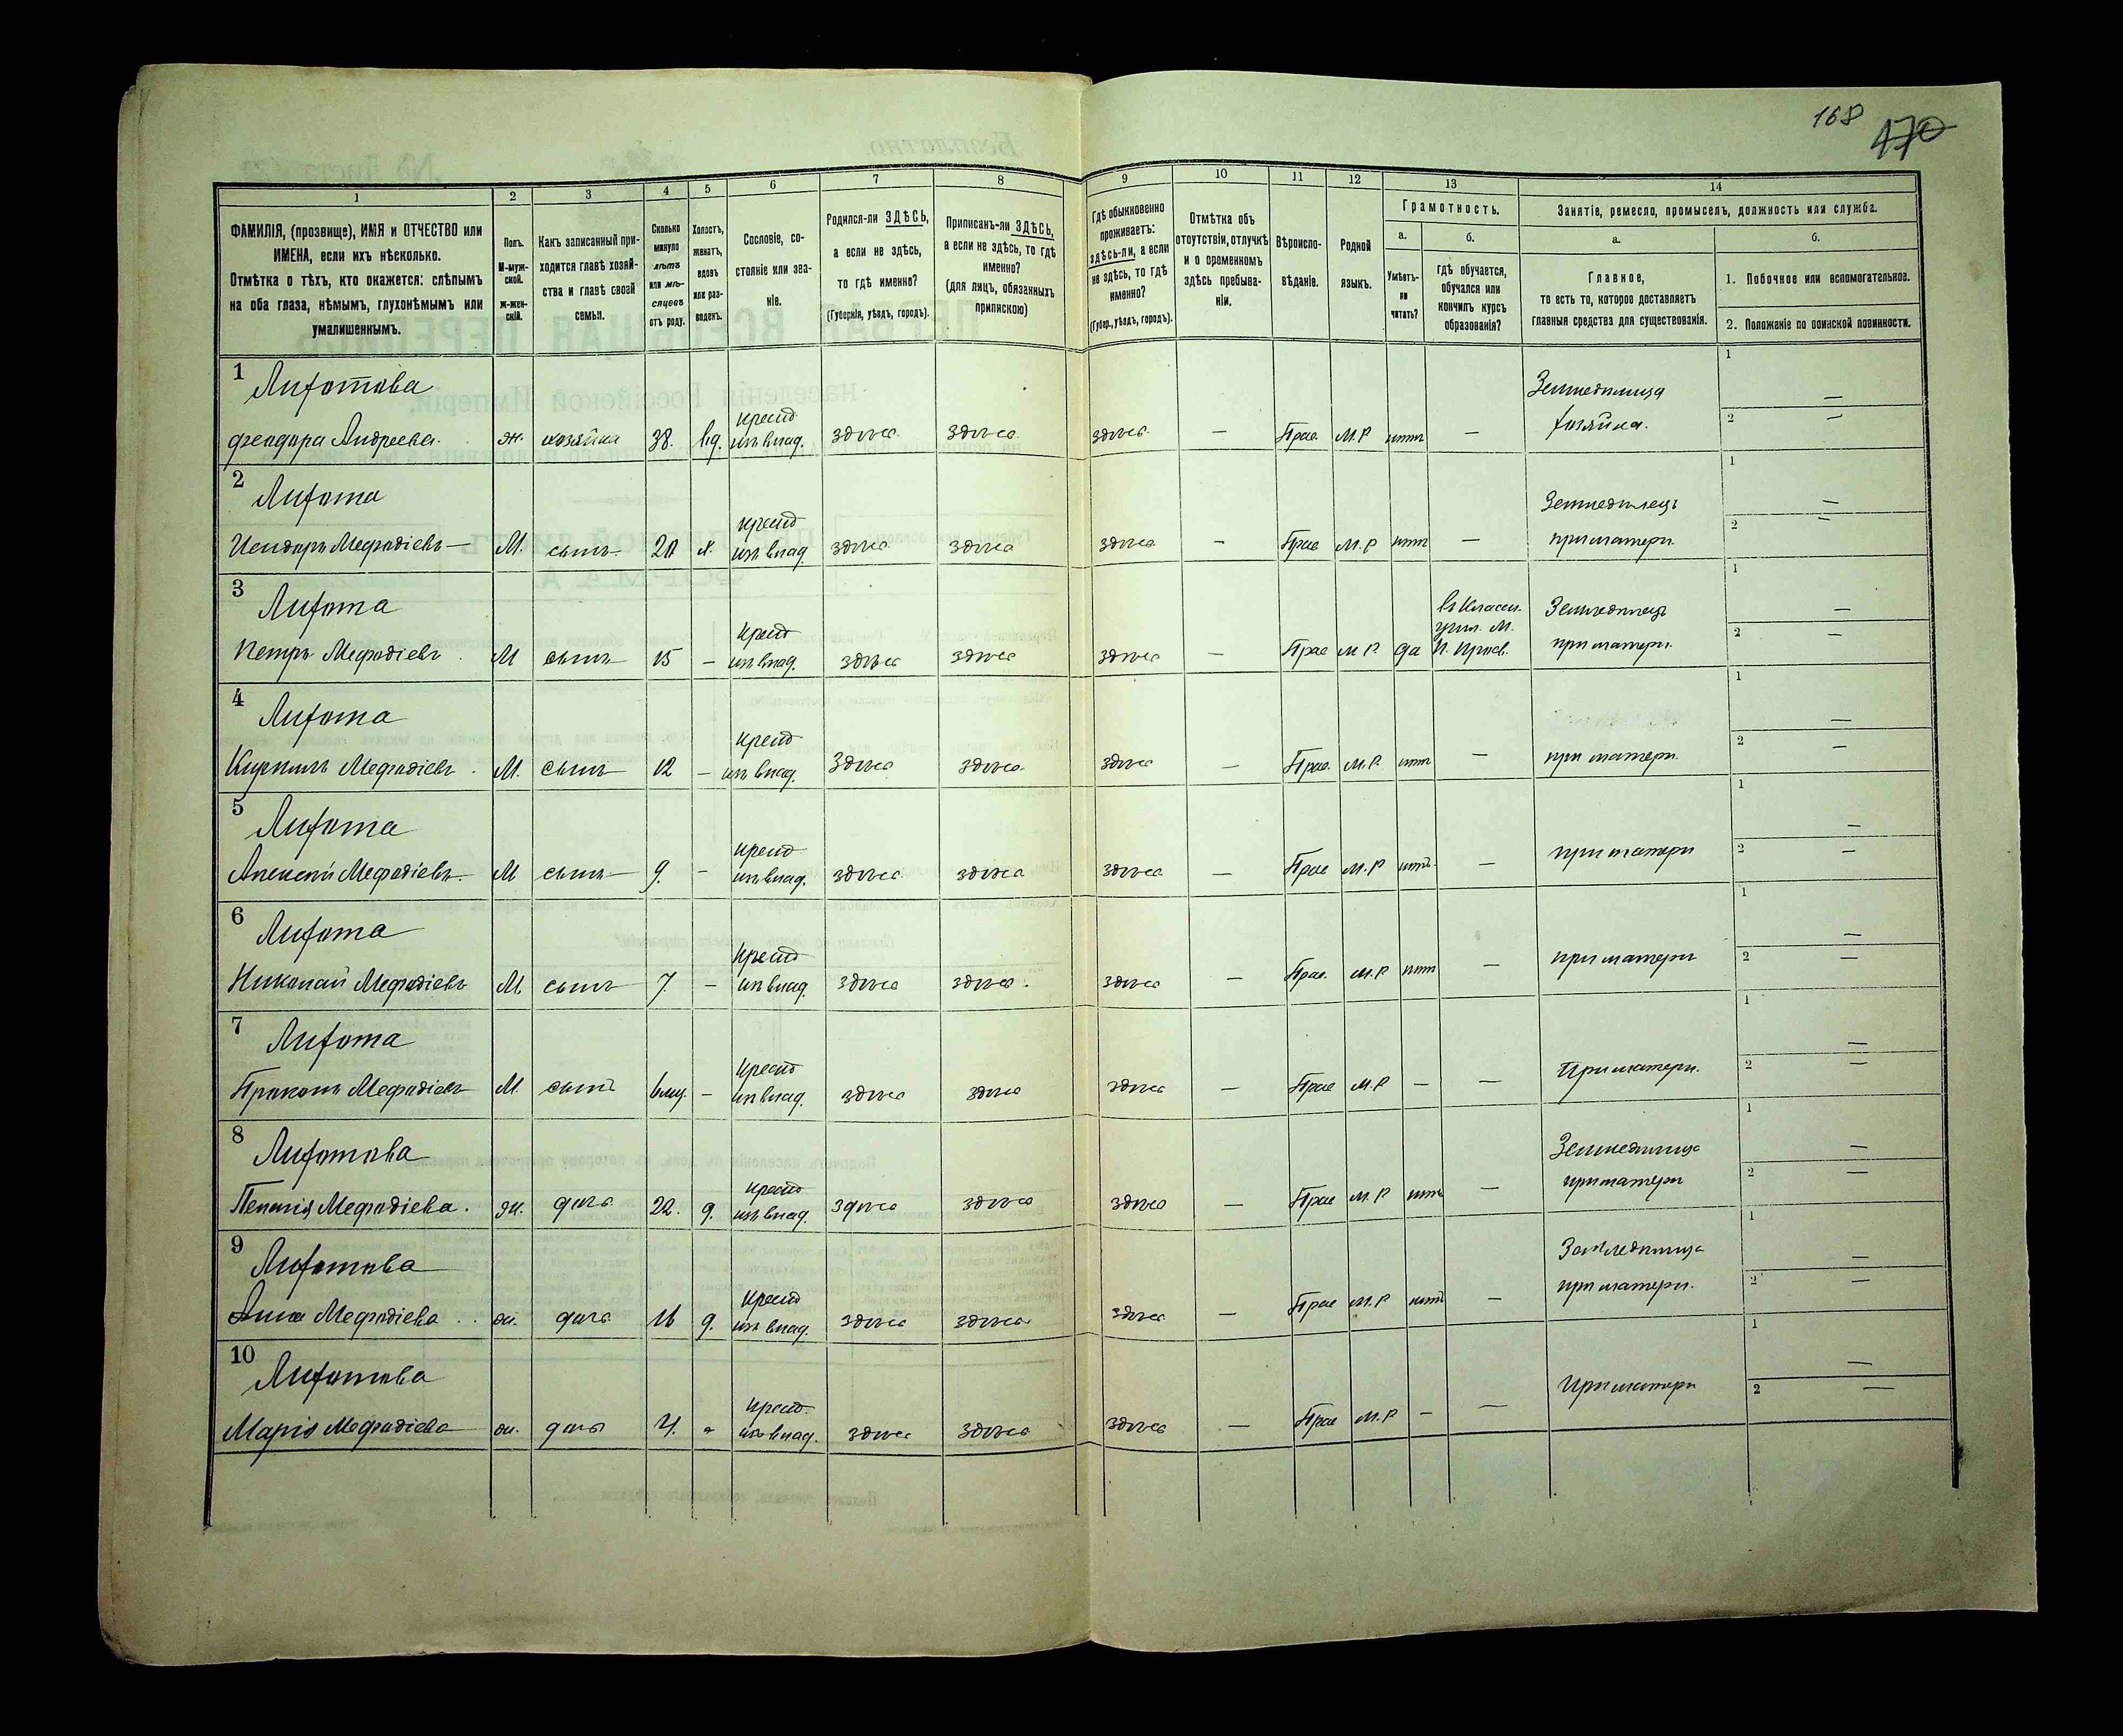 168
170
1
2
3
4
5
6
7
8
9
10
11
12
13
14
ФАМИЛІЯ, (прозвище), ИМЯ и ОТЧЕСТВО или
ИМЕНА, если ихъ нѣсколько.
Отмѣтка о тѣхъ, кто окажется: слѣпымъ
на оба глаза, нѣмымъ, глухонѣмымъ или
умалишеннымъ.
Полъ.
М-муж-
ской.
Ж-жен-
скій.
Какъ записанный при-
ходится главѣ хозяй-
ства и главѣ своей
семьи.
Сколько
минуло
лѣтъ
или мѣ-
сяцевъ
отъ роду.
Холостъ,
женатъ,
вдовъ
или раз-
веденъ.
Сословіе, со-
стояніе или зва-
ніе.
Родился-ли ЗДѢСЬ,
а если не здѣсь,
то гдѣ именно?
(Губернія, уѣздъ, городъ).
Приписанъ-ли ЗДѢСЬ,
а если не здѣсь, то гдѣ
именно?
(для лицъ, обязанныхъ
припискою)
Гдѣ обыкновенно
проживаетъ:
здѣсь-ли, а если
не здѣсь, то гдѣ
именно?
(Губер., уѣздъ, городъ).
Отмѣтка объ
отсутствіи, отлучкѣ
и о временномъ
здѣсь пребыва-
ніи.
Вѣроиспо-
вѣданіе.
Родной
языкъ.
Грамотность.
а.
Умѣетъ-
ли
читать?
б.
гдѣ обучается,
обучался или
кончилъ курсъ
образованія?
Занятіе, ремесло, промыселъ, должность или служба.
а.
Главное,
то есть то, которое доставляетъ
главныя средства для существованія.
б.
1. Побочное или вспомогательное.
2. Положеніе по воинской повинности.
1 Лихотова Земледѣлица 1 —
Феодора Андреева. ж. хозяйка 38. вд. крест. изъ влад. здѣсь здѣсь здѣсь — Прав. М.Р нѣтъ — хозяйка. 2 —
2 Лихота Земледѣлецъ 1 —
Исидоръ Мефодіевъ М. сынъ 20 х. крест. изъ влад. здѣсь здѣсь здѣсь — Прав М.Р нѣтъ — при матери. 2 —
3 Лихота Земледѣлецъ 1 —
Петръ Мефодіевъ М сынъ 15 — крест изъ влад. здѣсь здѣсь здѣсь — Прав М Р. да при матери. 2 —
4 Лихота 1 —
Кириллъ Мефодіевъ М. сынъ 12 — крест изъ влад. здѣсь здѣсь здѣсь — Прав. М.Р. нѣтъ — при матери. 2 —
5 Лихота 1 —
Алексѣй Мефодіевъ М сынъ 9. — крест изъ влад. здѣсь здѣсь здѣсь — Прав М.Р нѣтъ — при матери 2 —
6 Лихота 1 —
Николай Мефодіевъ М. сынъ 7 — крест изъ влад. здѣсь здѣсь здѣсь — Прав. М.Р нѣтъ — при матери 2 —
7 Лихота 1 —
Прокопъ Мефодіевъ М. сынъ 6 мѣ. — крест изъ влад. здѣсь здѣсь здѣсь — Прав М.Р — — При матери. 2 —
8 Лихотова Земледѣлица 1 —
Мефодіева. ж. дочь 22. д. крест изъ влад. здѣсь здѣсь здѣсь — Прав М.Р нѣтъ — при матери 2 —
9 Лихотова Земледѣлица 1 —
Анна Мефодіева ж. дочь 16 д. крест изъ влад. здѣсь здѣсь здѣсь — Прав М.Р нѣтъ — при матери. 2 —
10 Лихотова 1 —
Марія Мефодіева ж. дочь 4. крест. изъ влад. здѣсь здѣсь здѣсь — Прав М.Р — — При матери 2 —